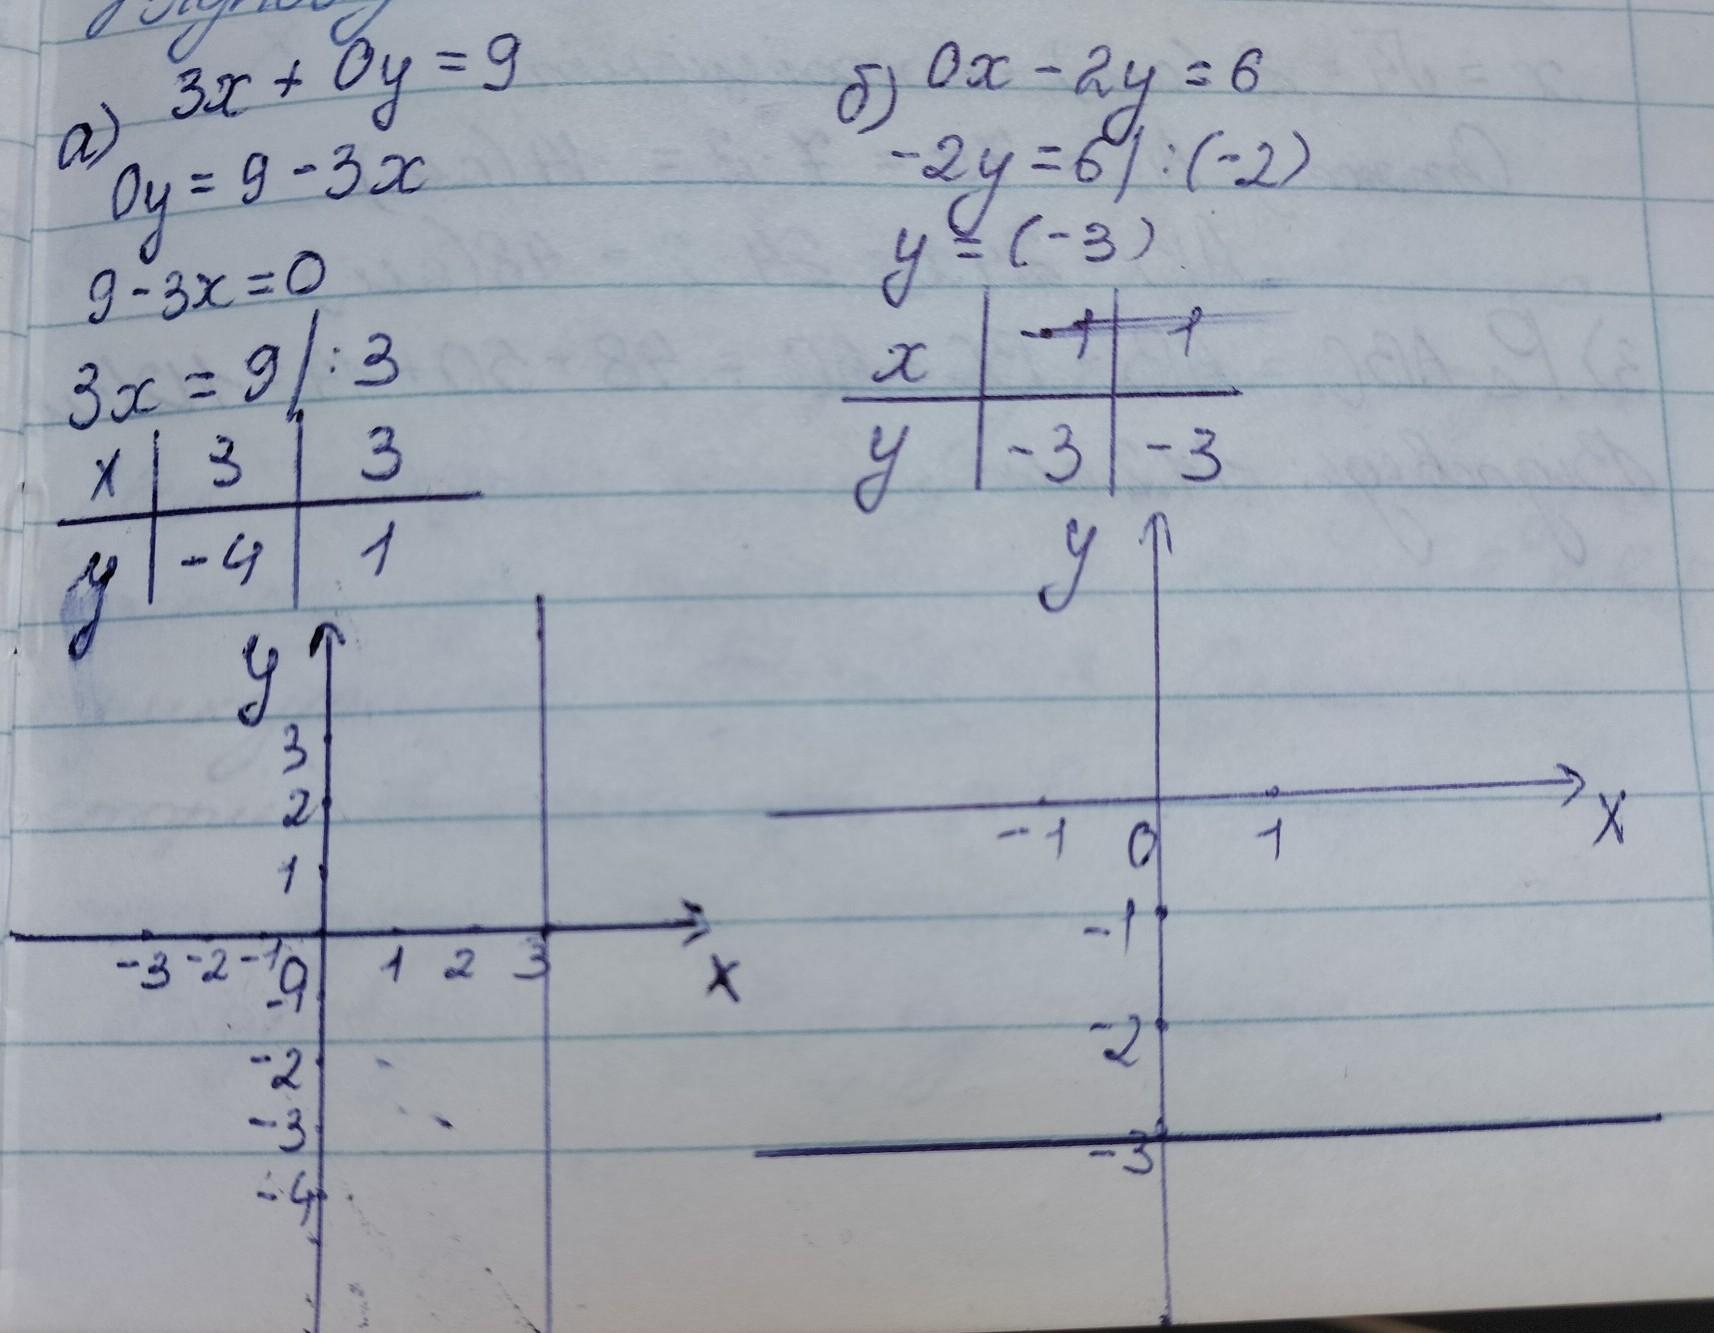 а) 3x + 0y = 9
0y = 9 - 3x
9 - 3x = 0
3x = 9 | : 3
x | 3 | 3
y | -4 | 1
y
3
2
1
-3 -2 -1 0 1 2 3 x
-1
-2
-3
-4
б) 0x - 2y = 6
-2y = 6 | : (-2)
y = (-3)
x | -1 | 1
y | -3 | -3
y
-1 0 1 x
-1
-2
-3